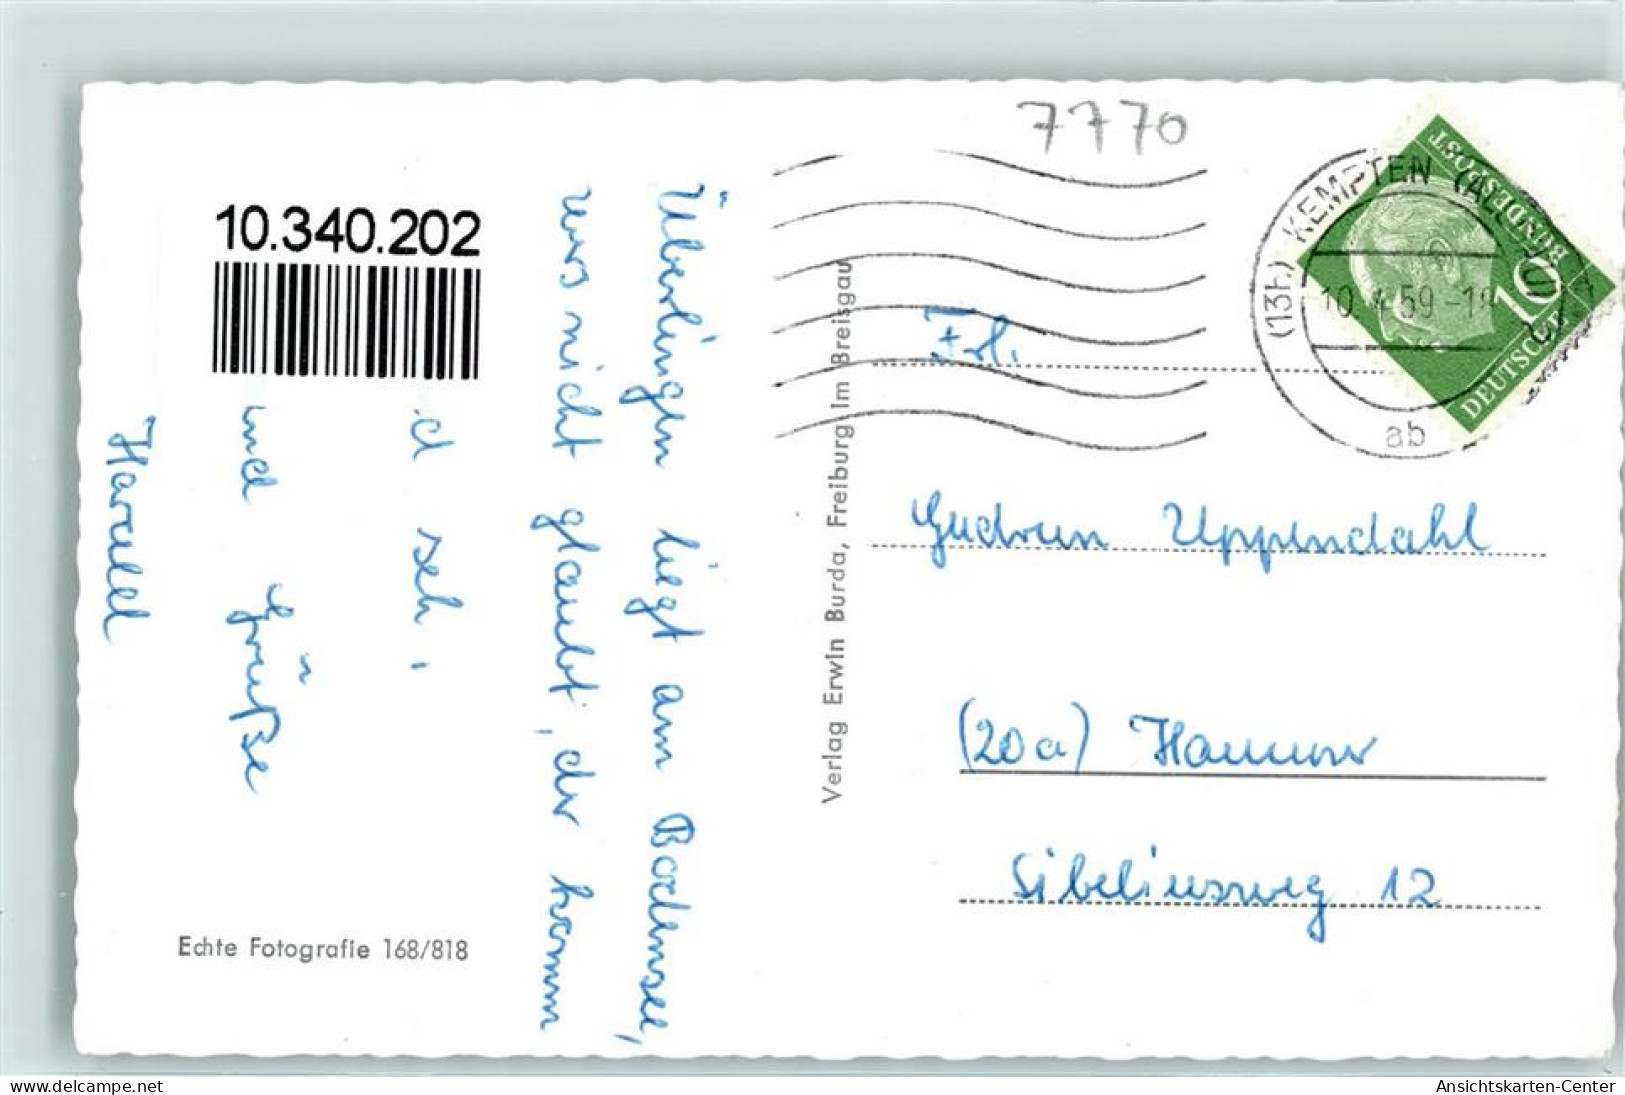 7770
10.340.202
Überlingen liegt am Bodensee,
wers nicht glaubt, der komm
d seh,
und Grüße
Harald
Echte Fotografie 168/818
Verlag Erwin Burda, Freiburg im Breisgau
(13b) KEMPTEN (ALLGÄU)
59
ab
DEUTSCHE BUNDESPOST
10
Frl.
Gudrun Uppendahl
(20a) Hannover
Sibeliusweg 12
www.delcampe.net
Ansichtskarten-Center